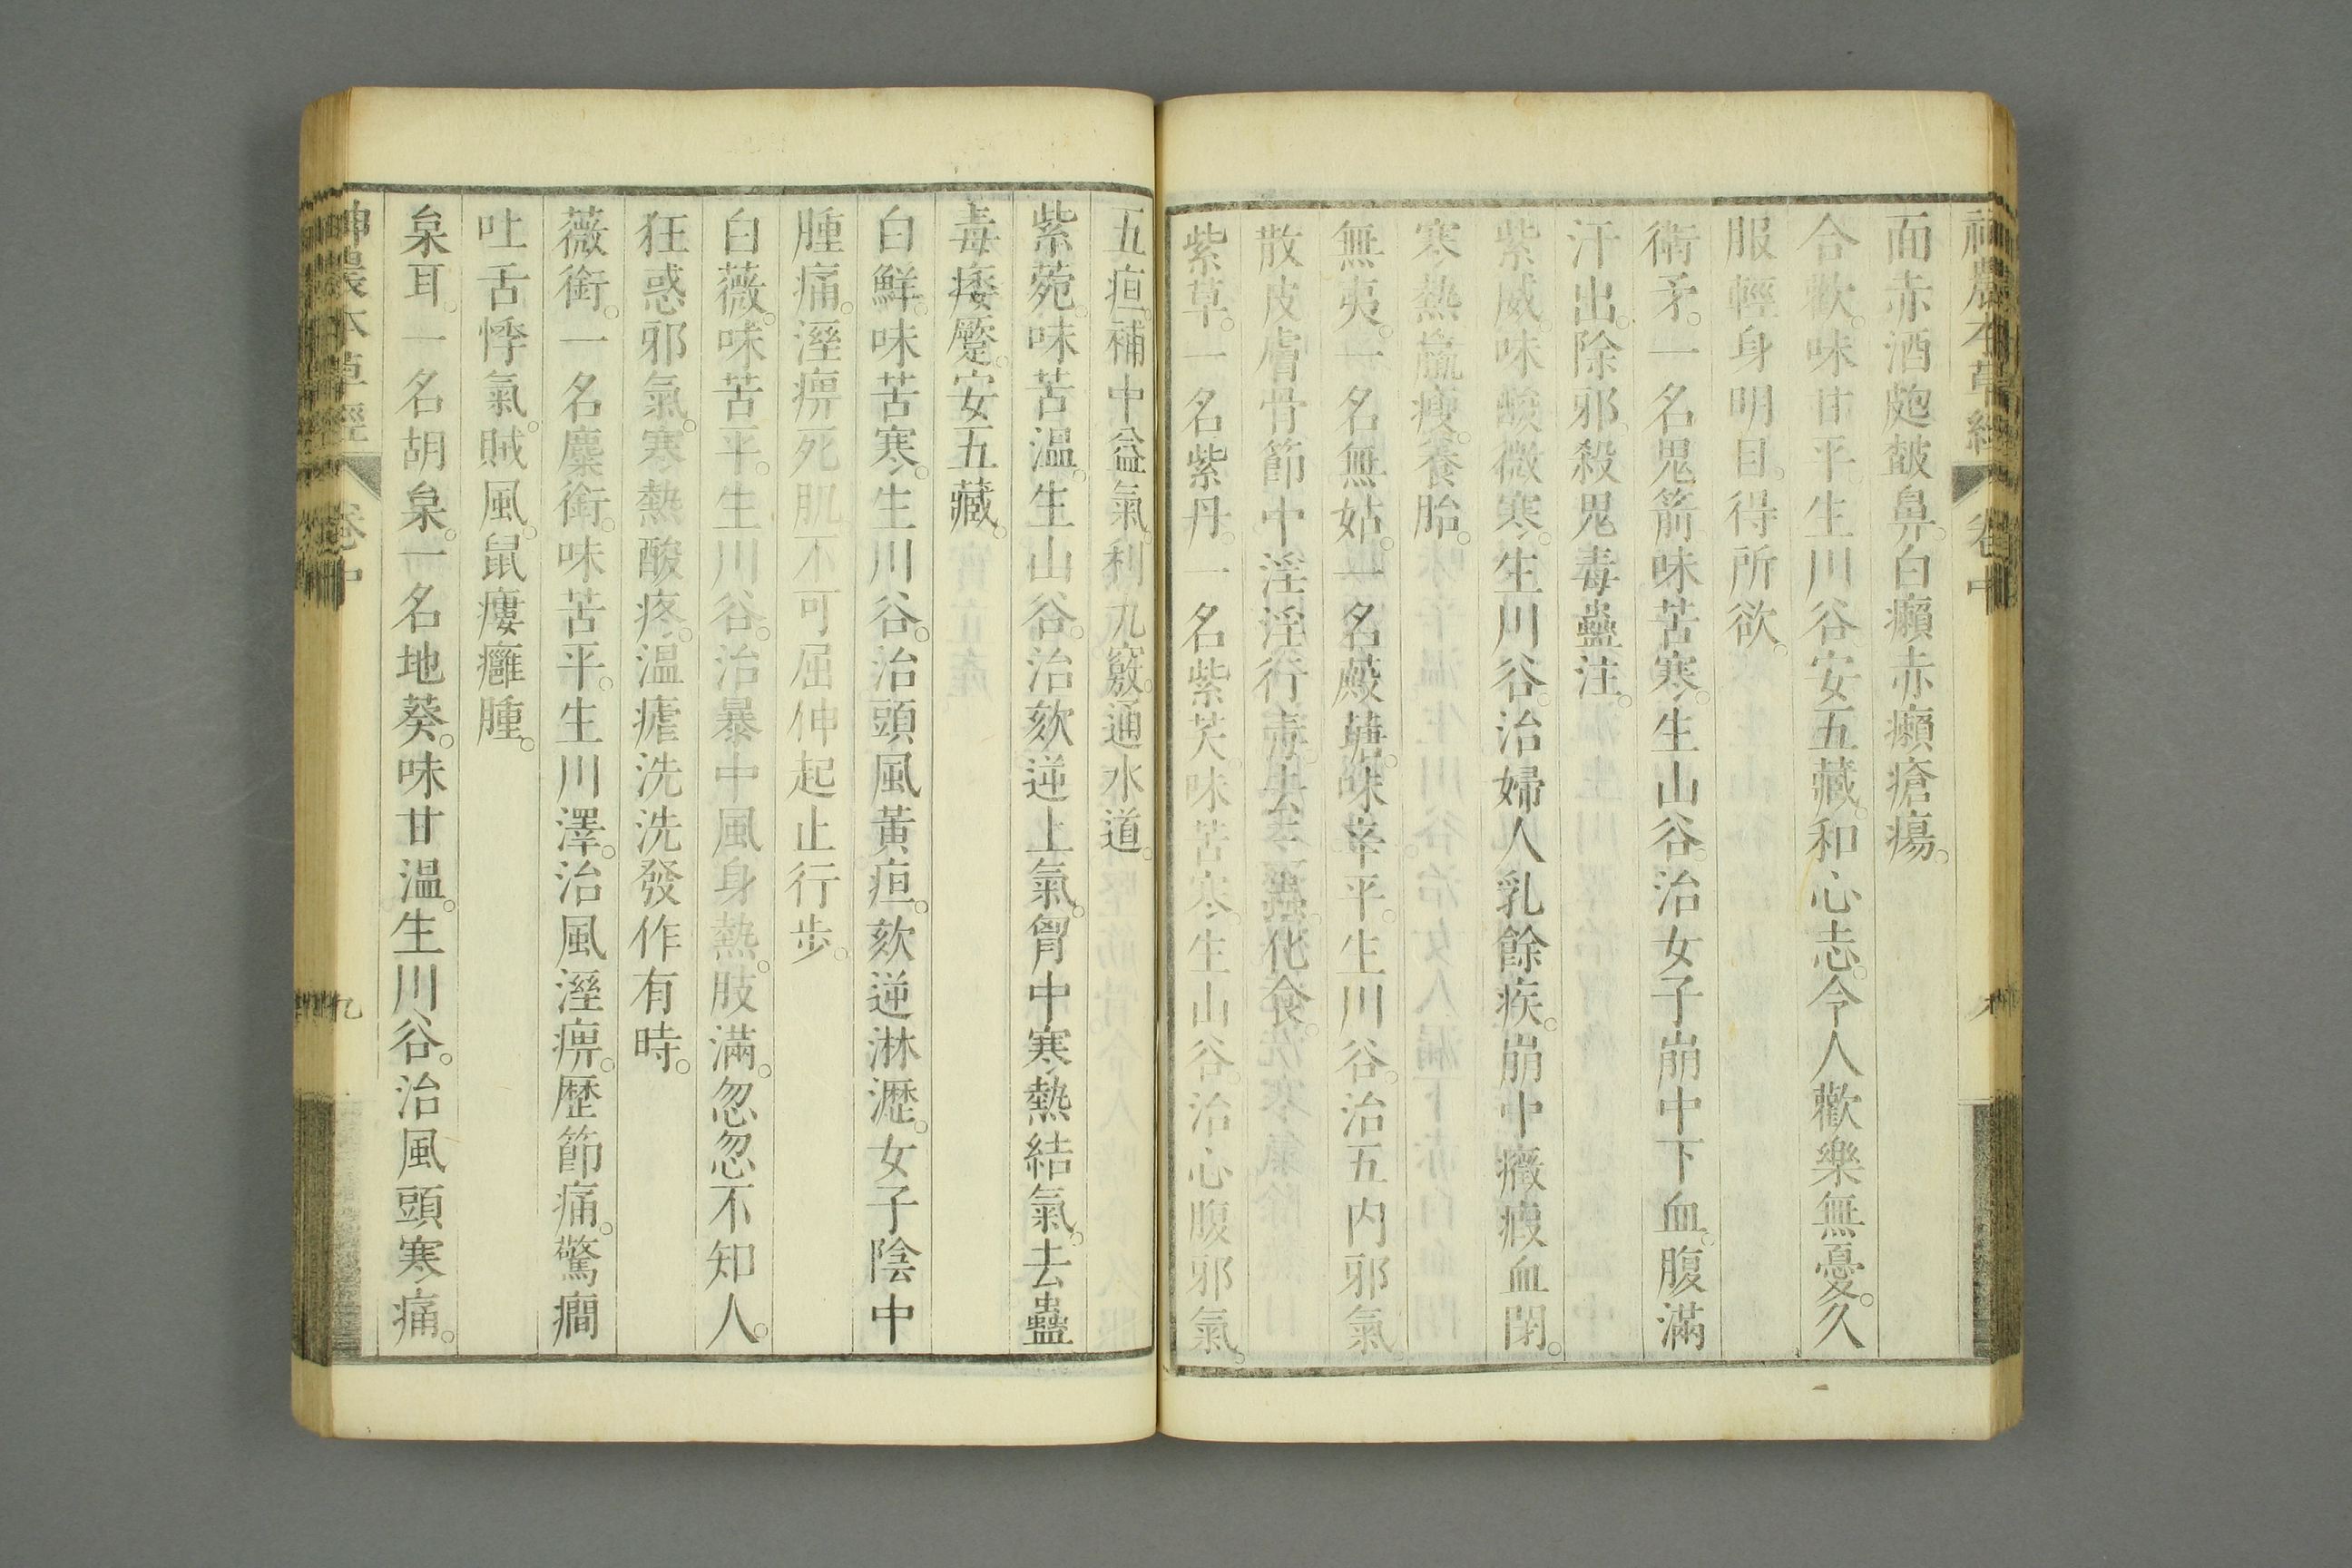 神農本草經 卷中
面赤酒皰皶鼻。白癩赤癩瘡瘍。
合歡。味甘平。生川谷。安五藏。和心志。令人歡樂無憂。久
服輕身明目。得所欲。
衛矛。一名鬼箭。味苦寒。生山谷。治女子崩中下血。腹滿
汗出。除邪。殺鬼毒蠱注。
紫威。味酸微寒。生川谷。治婦人乳餘疾。崩中癥瘕血閉。
寒熱羸瘦。養胎。
無夷。一名無姑。一名䕋蘠。味辛平。生川谷。治五內邪氣。
散皮膚骨節中淫淫行毒。去三蟲。化食。
紫草。一名紫丹。一名紫芺。味苦寒。生山谷。治心腹邪氣。
五疸。補中益氣。利九竅。通水道。
紫菀。味苦溫。生山谷。治欬逆上氣。胷中寒熱結氣。去蠱
毒痿蹷。安五藏。
白鮮。味苦寒。生川谷。治頭風黃疸。欬逆淋瀝。女子陰中
腫痛。溼痹死肌不可屈伸起止行步。
白薇。味苦平。生川谷。治暴中風身熱。肢滿。忽忽不知人。
狂惑邪氣。寒熱酸疼。溫瘧洗洗發作有時。
薇銜。一名麋銜。味苦平。生川澤。治風溼痹。歷節痛。驚癎
吐舌悸氣。賊風。鼠瘻癰腫。
枲耳。一名胡枲。一名地葵。味甘溫。生川谷。治風頭寒痛。
神農本草經 卷中 九